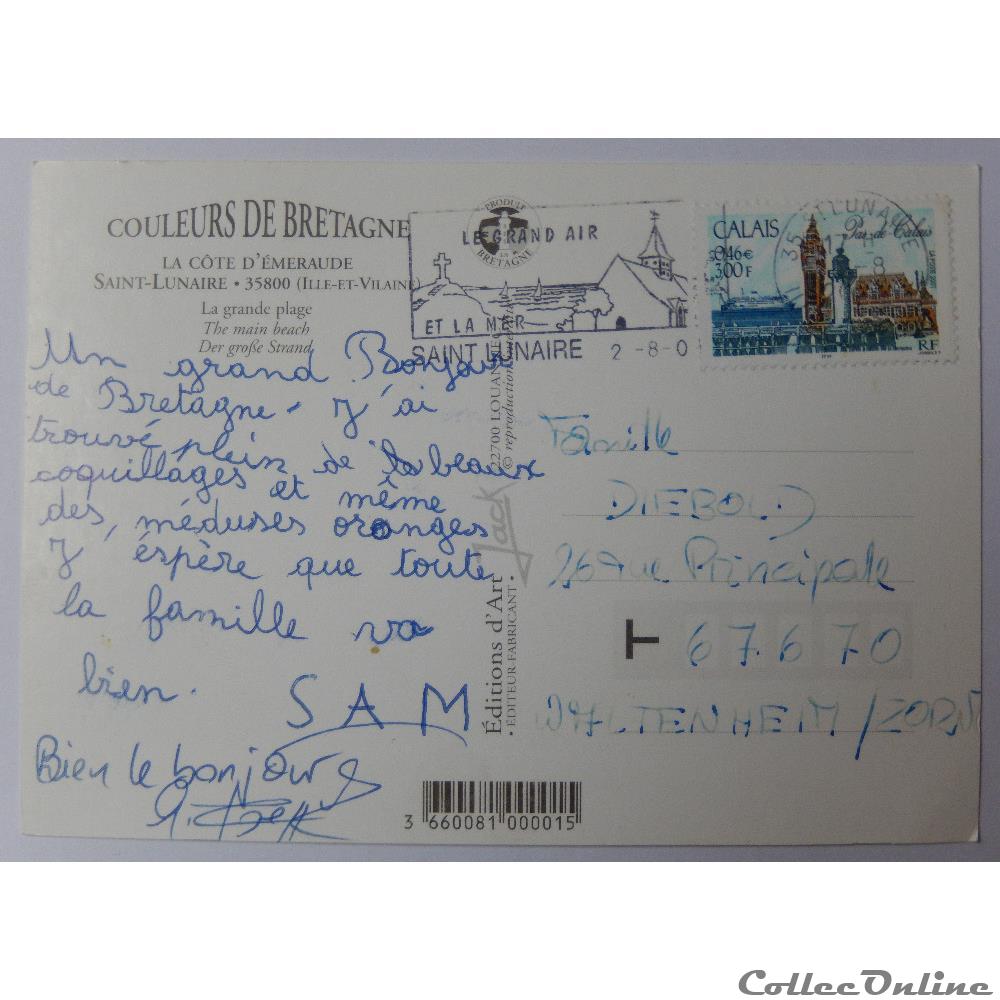 COULEURS DE BRETAGNE
LA CÔTE D'ÉMERAUDE
SAINT-LUNAIRE • 35800 (ILLE-ET-VILAINE)
La grande plage
The main beach
Der große Strand
Un grand Bonjour
de Bretagne - J'ai
trouvé plein de beaux
coquillages et même
des méduses oranges
J'éspère que toute
la famille va
bien.
SAM
Bien le bonjour
PRODUIT
EN
BRETAGNE
LE GRAND AIR
ET LA MER
SAINT LUNAIRE 2-8-0
35 LUNAIRE
CALAIS
Pas de Calais
0,46€
3,00F
LA POSTE 2001
RF
22700 LOUANNEC
© reproduction interdite
Jack
Éditions d'Art
• ÉDITEUR-FABRICANT •
Famille
DIEBOLD
26 rue Principale
T 67670
WALTENHEIM/ZORN
3 660081 000015
CollecOnline